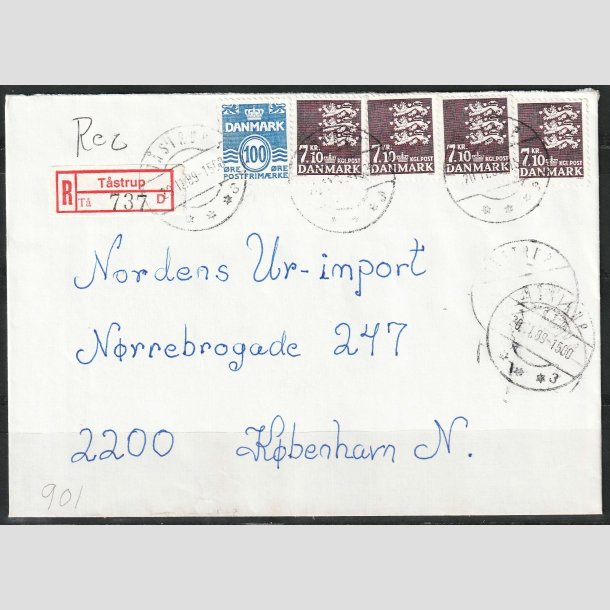 Rec
DANMARK
100
ØRE ØRE
POSTFRIMÆRKE
7.10 KR. KGL POST
DANMARK
7.10 KR. KGL POST
DANMARK
7.10 KR. KGL POST
DANMARK
7.10 KR. KGL POST
DANMARK
R Tåstrup
Tå 737 D
Nordens Ur-import
Nørrebrogade 247
2200 København N.
901